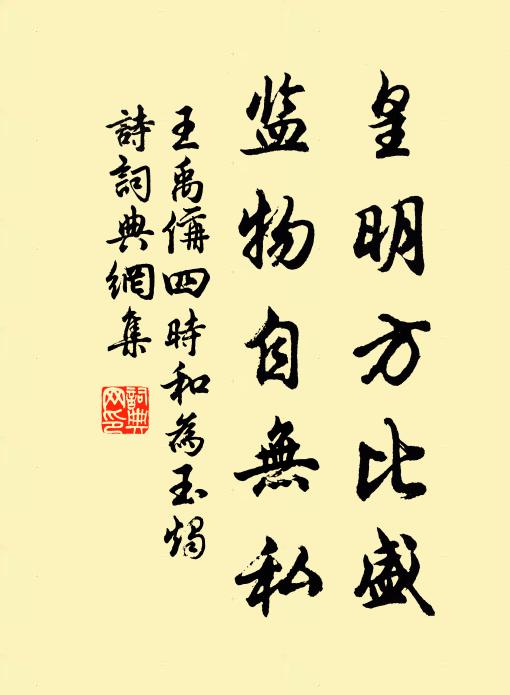 皇明方比盛
监物自無私
王禹偁四時和為玉燭
詩詞典網集
詞典網印